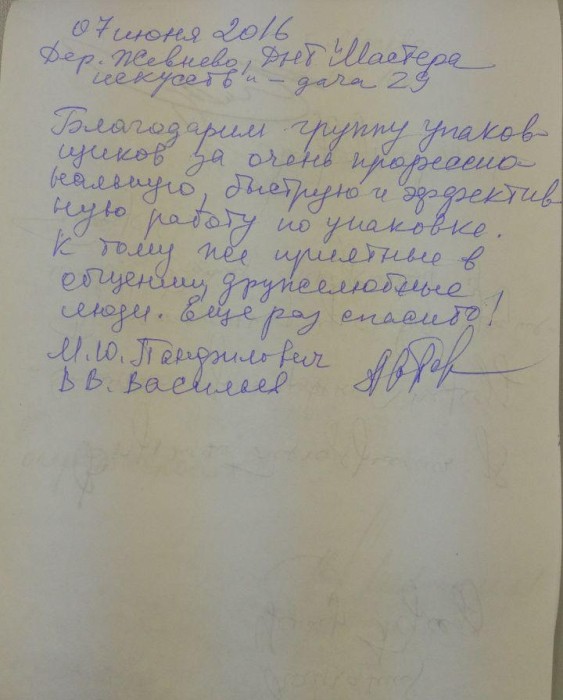 07 июня 2016
Дер. Жевнево, ДНТ "Мастера
искусств" - дача 29
Благодарим группу упаков-
щиков за очень професcио-
нальную, быструю и эффектив-
ную работу по упаковке.
К тому же приятные в
общении, дружелюбные
люди. Еще раз спасибо!
М.Ю. Панфилович
В В. Васильев